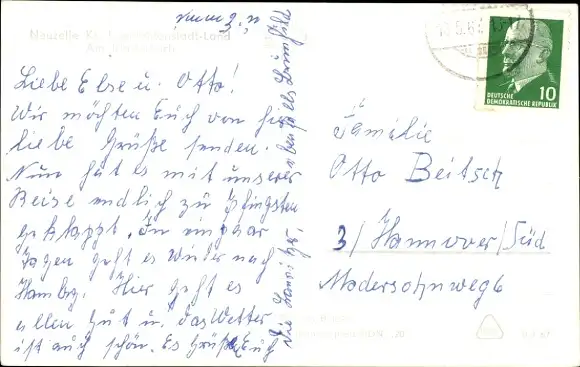 Neuzelle Kr. Eisenhüttenstadt-Land
Liebe Else u. Otto!
Wir möchten Euch von hier
liebe Grüße senden.
Nun hat es mit unserer
Reise endlich zu Pfingsten
geklappt. In ein paar
Tagen geht es wieder nach
Hambg. Hier geht es
allen gut u. das Wetter
ist auch schön. Es Grüßt Euch
ebenfalls
DEUTSCHE
DEMOKRATISCHE REPUBLIK
10
Familie
Otto Beitsch
3/ Hannover/Süd
Modersohnweg 6